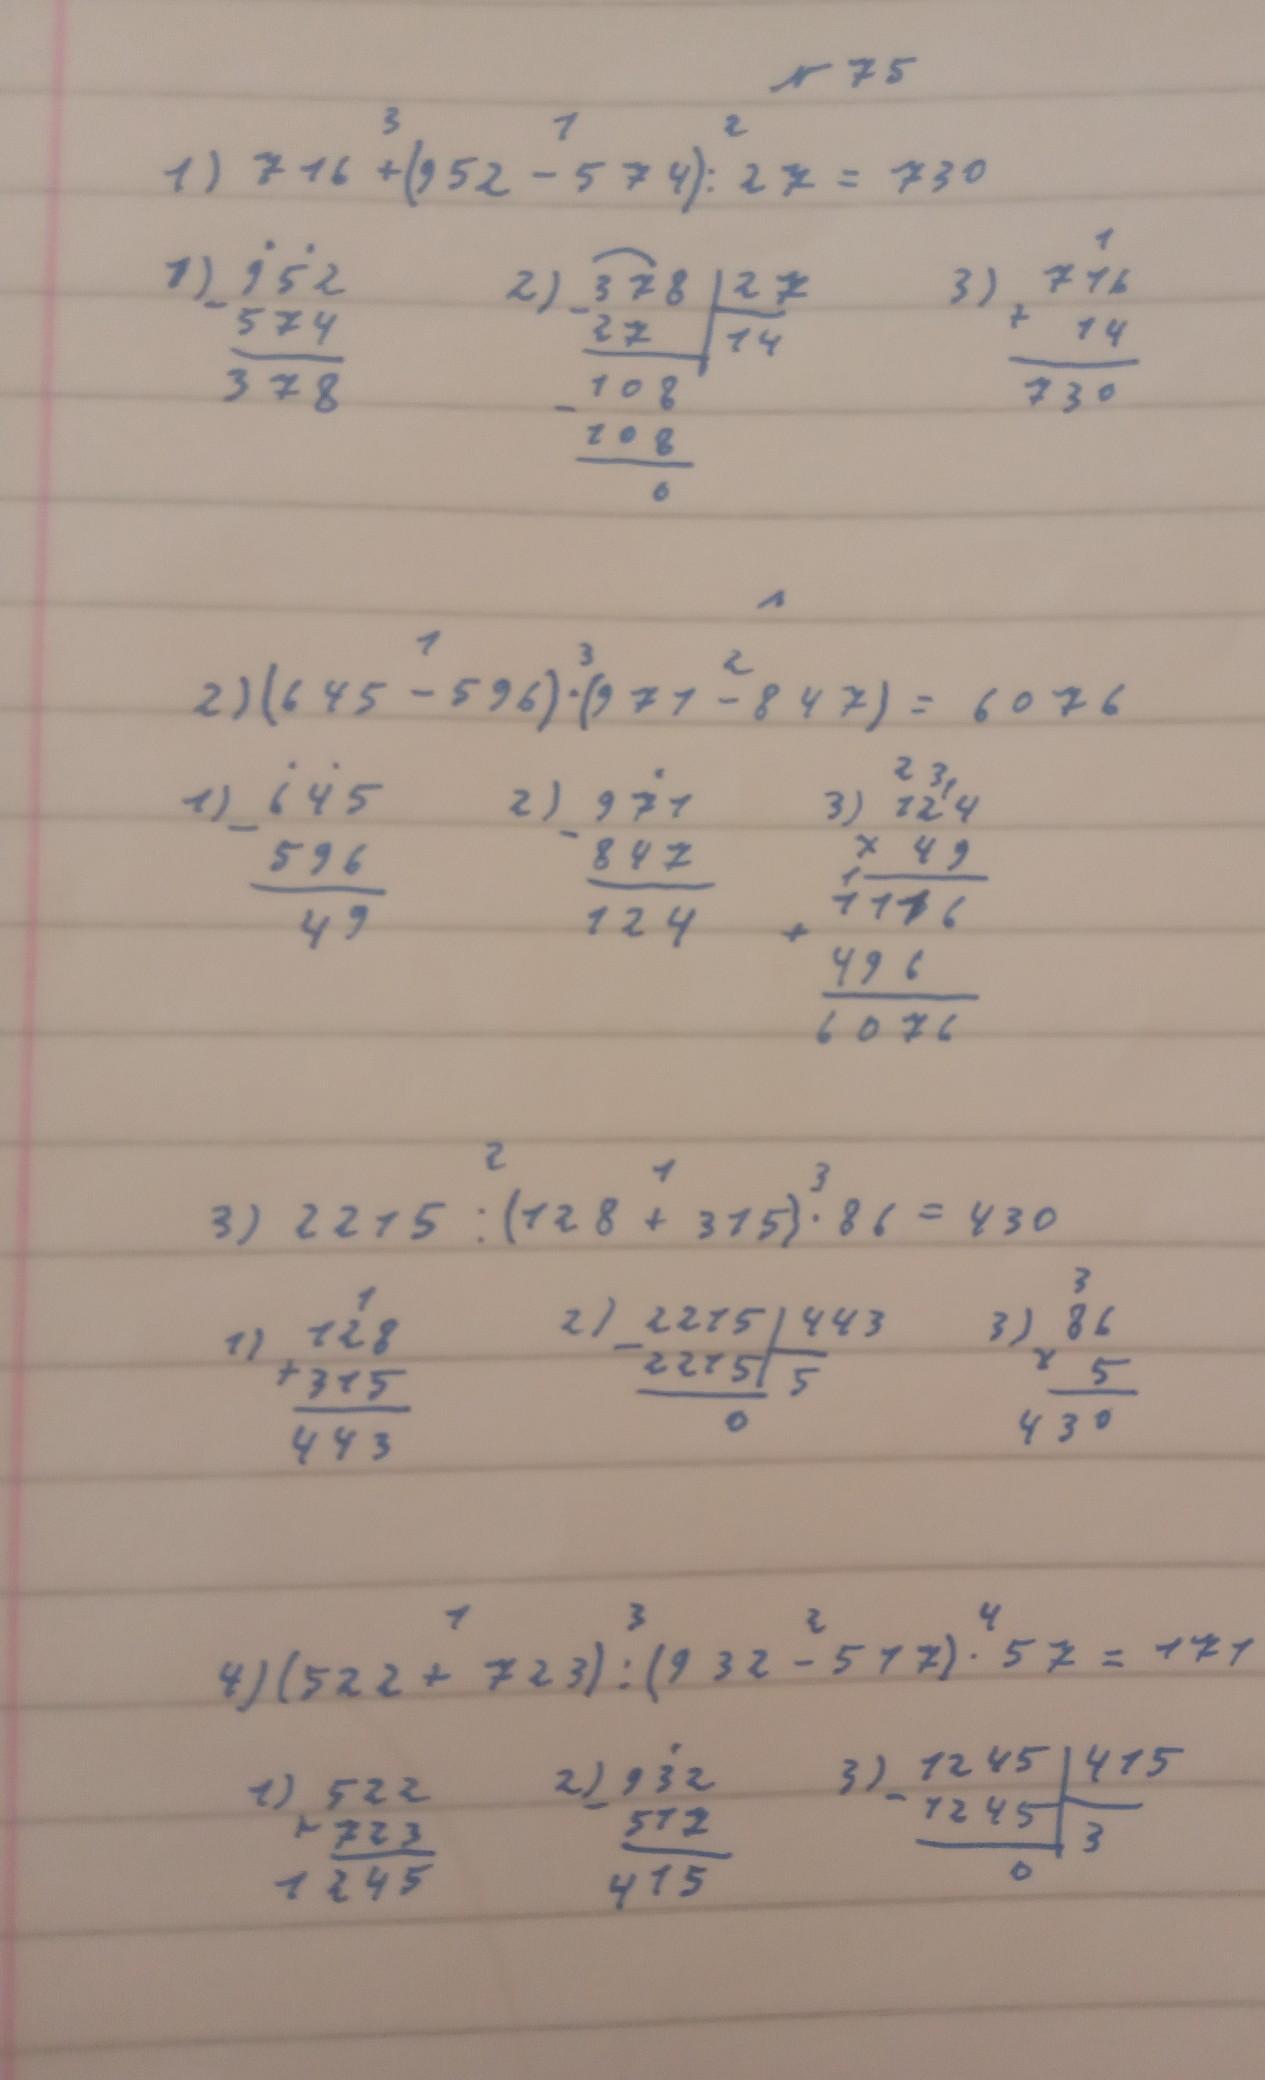 № 75
3 1 2
1) 716 + (952 - 574) : 27 = 730
1) 952 2) 378 | 27 3) 716
- 574 - 27 14 + 14
378 108 730
- 108
0
1
1 3 2
2) (645 - 596) · (971 - 847) = 6076
23
1) 645 2) 971 3) 124
- 596 - 847 x 49
49 124 1116
+ 496
6076
2 1 3
3) 2215 : (128 + 315) · 86 = 430
1 3
1) 128 2) 2215 | 443 3) 86
+ 315 - 2215 5 x 5
443 0 430
1 3 2 4
4) (522 + 723) : (932 - 517) · 57 = 171
1) 522 2) 932 3) 1245 | 415
+ 723 - 517 - 1245 3
1245 415 0